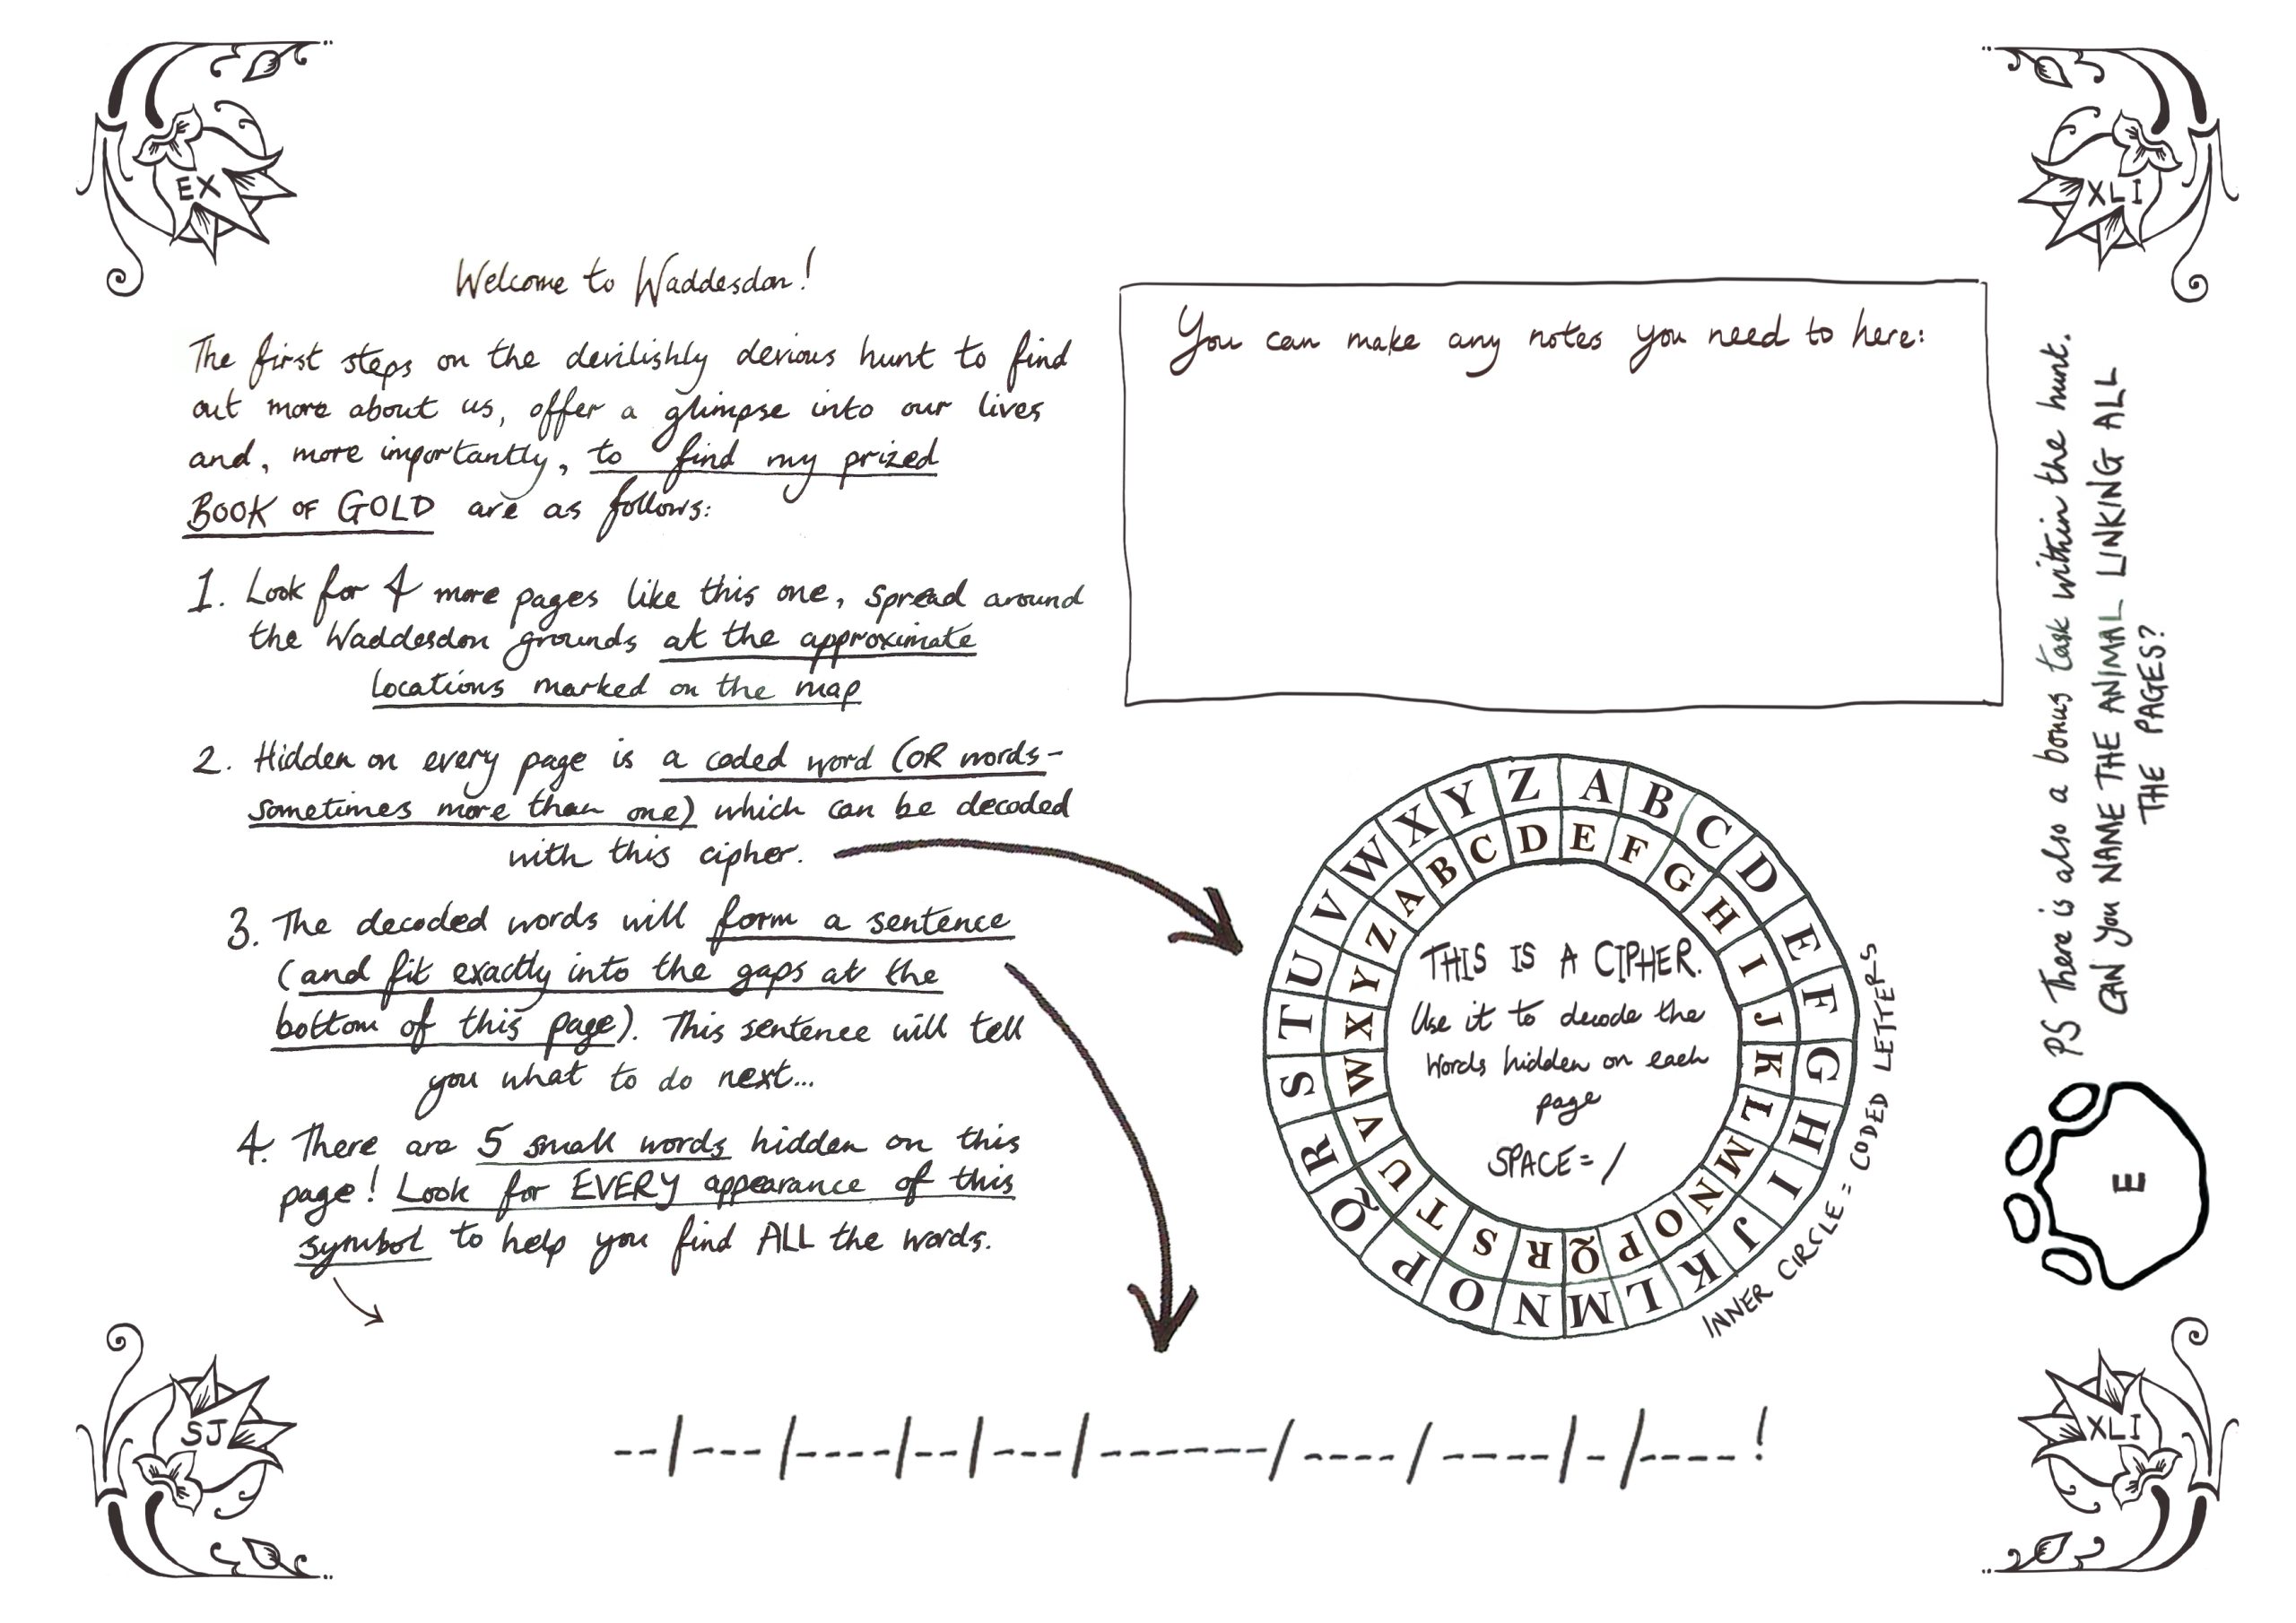 EX
XLI
Welcome to Waddesdon!
The first steps on the devilishly devious hunt to find
out more about us, offer a glimpse into our lives
and, more importantly, to find my prized
BOOK OF GOLD are as follows:
1. Look for 4 more pages like this one, spread around
the Waddesdon grounds at the approximate
locations marked on the map
2. Hidden on every page is a coded word (OR words-
sometimes more than one) which can be decoded
with this cipher.
3. The decoded words will form a sentence
(and fit exactly into the gaps at the
bottom of this page). This sentence will tell
you what to do next...
4. There are 5 small words hidden on this
page! Look for EVERY appearance of this
symbol to help you find ALL the words.
You can make any notes you need to here:
A B C D E F G H I J K L M N O P Q R S T U V W X Y Z
E F G H I J K L M N O P Q R S T U V W X Y Z A B C D
THIS IS A CIPHER.
Use it to decode the
words hidden on each
page
SPACE = /
INNER CIRCLE = CODED LETTERS
PS There is also a bonus task within the hunt.
CAN you NAME THE ANIMAL LINKING ALL
THE PAGES?
E
SJ
XLI
--/---/----/--/---/-------/----/----/-/----!